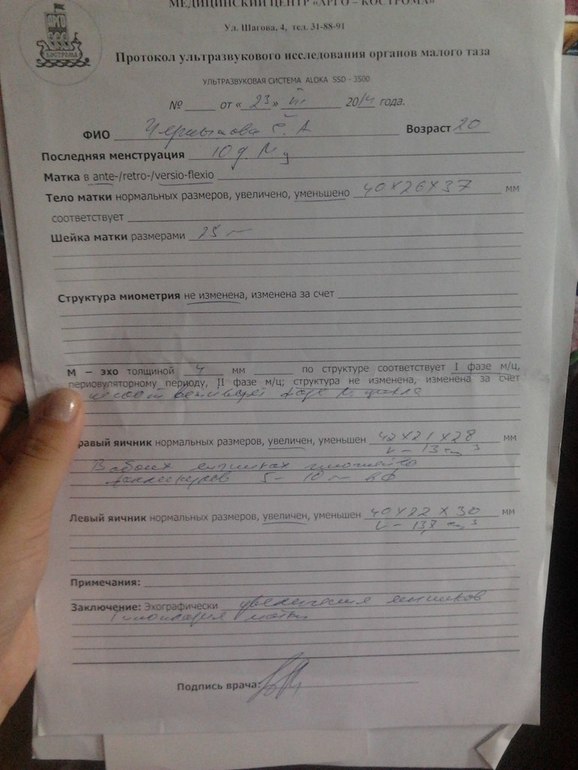 МЕДИЦИНСКИЙ ЦЕНТР «АРГО – КОСТРОМА»
АРГО
КОСТРОМА
Ул. Шагова, 4, тел. 31-88-91
Протокол ультразвукового исследования органов малого таза
УЛЬТРАЗВУКОВАЯ СИСТЕМА ALOKA SSD - 3500
№ от « 23 » III 2014 года.
ФИО Возраст 20
Последняя менструация 10 д. М ц
Матка в ante-/retro-/versio-flexio
Тело матки нормальных размеров, увеличено, уменьшено 40 х 26 х 37 мм
соответствует
Шейка матки размерами 25
Структура миометрия не изменена, изменена за счет
М – эхо толщиной 4 мм по структуре соответствует I фазе м/ц,
периовуляторному периоду, II фазе м/ц; структура не изменена, изменена за счет
правый яичник нормальных размеров, увеличен, уменьшен 42 х 21 х 28 мм
V - 13 см 3
В обоих яичниках множество
фолликулов 5 - 10
Левый яичник нормальных размеров, увеличен, уменьшен 40 х 22 х 30 мм
V - 13,8 см 3
Примечания:
Заключение: Эхографически увеличения яичников
матки
Подпись врача: